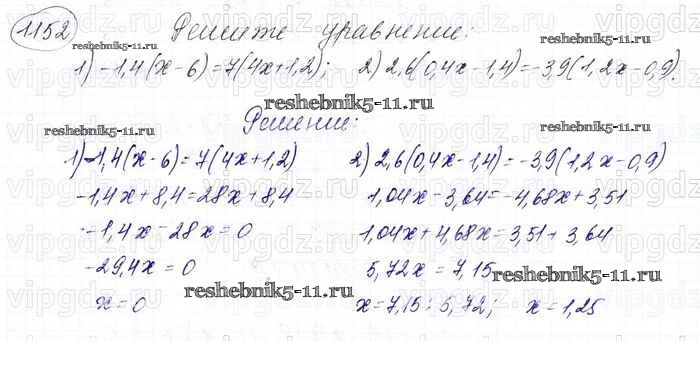 1152 Решите уравнение:
1) -1,4(x-6)=7(4x+1,2); 2) 2,6(0,4x-1,4)=-3,9(1,2x-0,9).
Решение:
1) -1,4(x-6)=7(4x+1,2)
-1,4x+8,4=28x+8,4
-1,4x-28x=0
-29,4x=0
x=0
2) 2,6(0,4x-1,4)=-3,9(1,2x-0,9)
1,04x-3,64=-4,68x+3,51
1,04x+4,68x=3,51+3,64
5,72x=7,15
x=7,15:5,72; x=1,25
reshebnik5-11.ru
reshebnik5-11.ru
reshebnik5-11.ru
reshebnik5-11.ru
reshebnik5-11.ru
reshebnik5-11.ru
reshebnik5-11.ru
vipgdz.ru